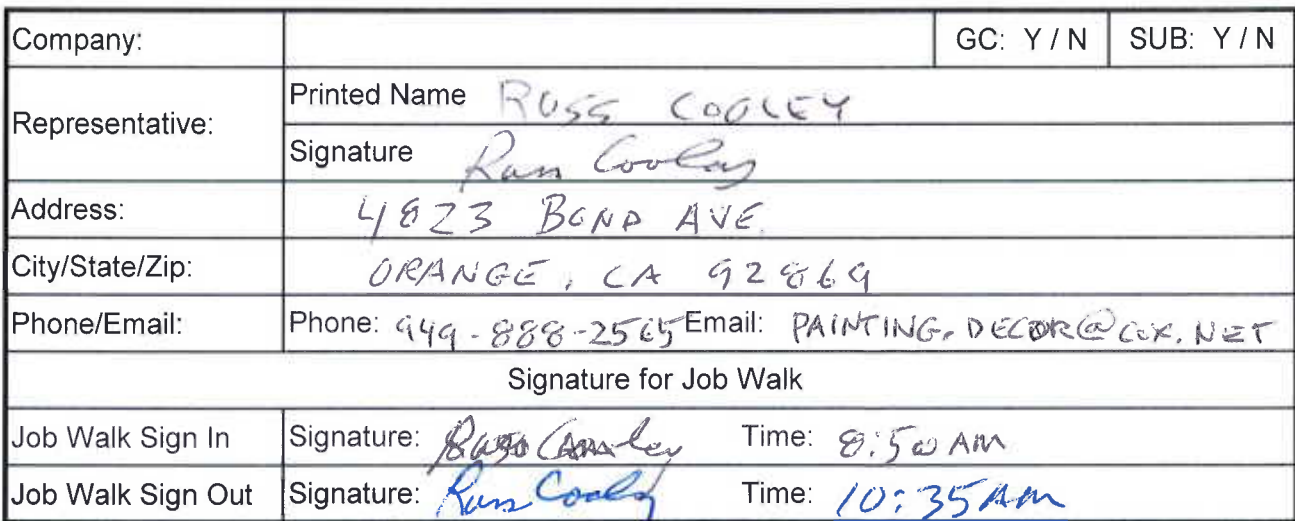 Company: GC: Y / N SUB: Y / N
Representative:
Printed Name RUSS COOLEY
Signature Russ Cooley
Address: 4823 BOND AVE.
City/State/Zip: ORANGE, CA 92869
Phone/Email: Phone: 949-888-2565 Email: PAINTING.DECOR@COX.NET
Signature for Job Walk
Job Walk Sign In Signature: Russ Cooley Time: 8:50 AM
Job Walk Sign Out Signature: Russ Cooley Time: 10:35 AM